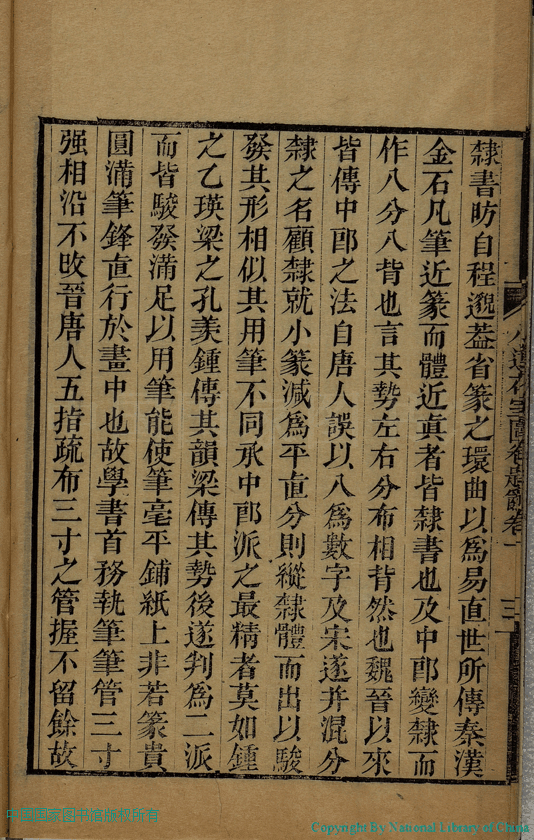 隸書昉自程邈葢省篆之環曲以爲易直世所傳秦漢
金石凡筆近篆而體近真者皆隸書也及中郎變隸而
作八分八背也言其勢左右分布相背然也魏晉以來
皆傳中郎之法自唐人誤以八爲數字及宋遂并混分
隸之名顧隸就小篆減爲平直分則縱隸體而出以駿
發其形相似其用筆不同承中郎派之最精者莫如鍾
之乙瑛梁之孔羡鍾傳其韻梁傳其勢後遂判爲二派
而皆駿發滿足以用筆能使筆毫平鋪紙上非若篆貴
圓滿筆鋒直行於畫中也故學書首務執筆筆管三寸
强相沿不改晉唐人五指疏布三寸之管握不留餘故
卷一
三
Copyright By National Library of China